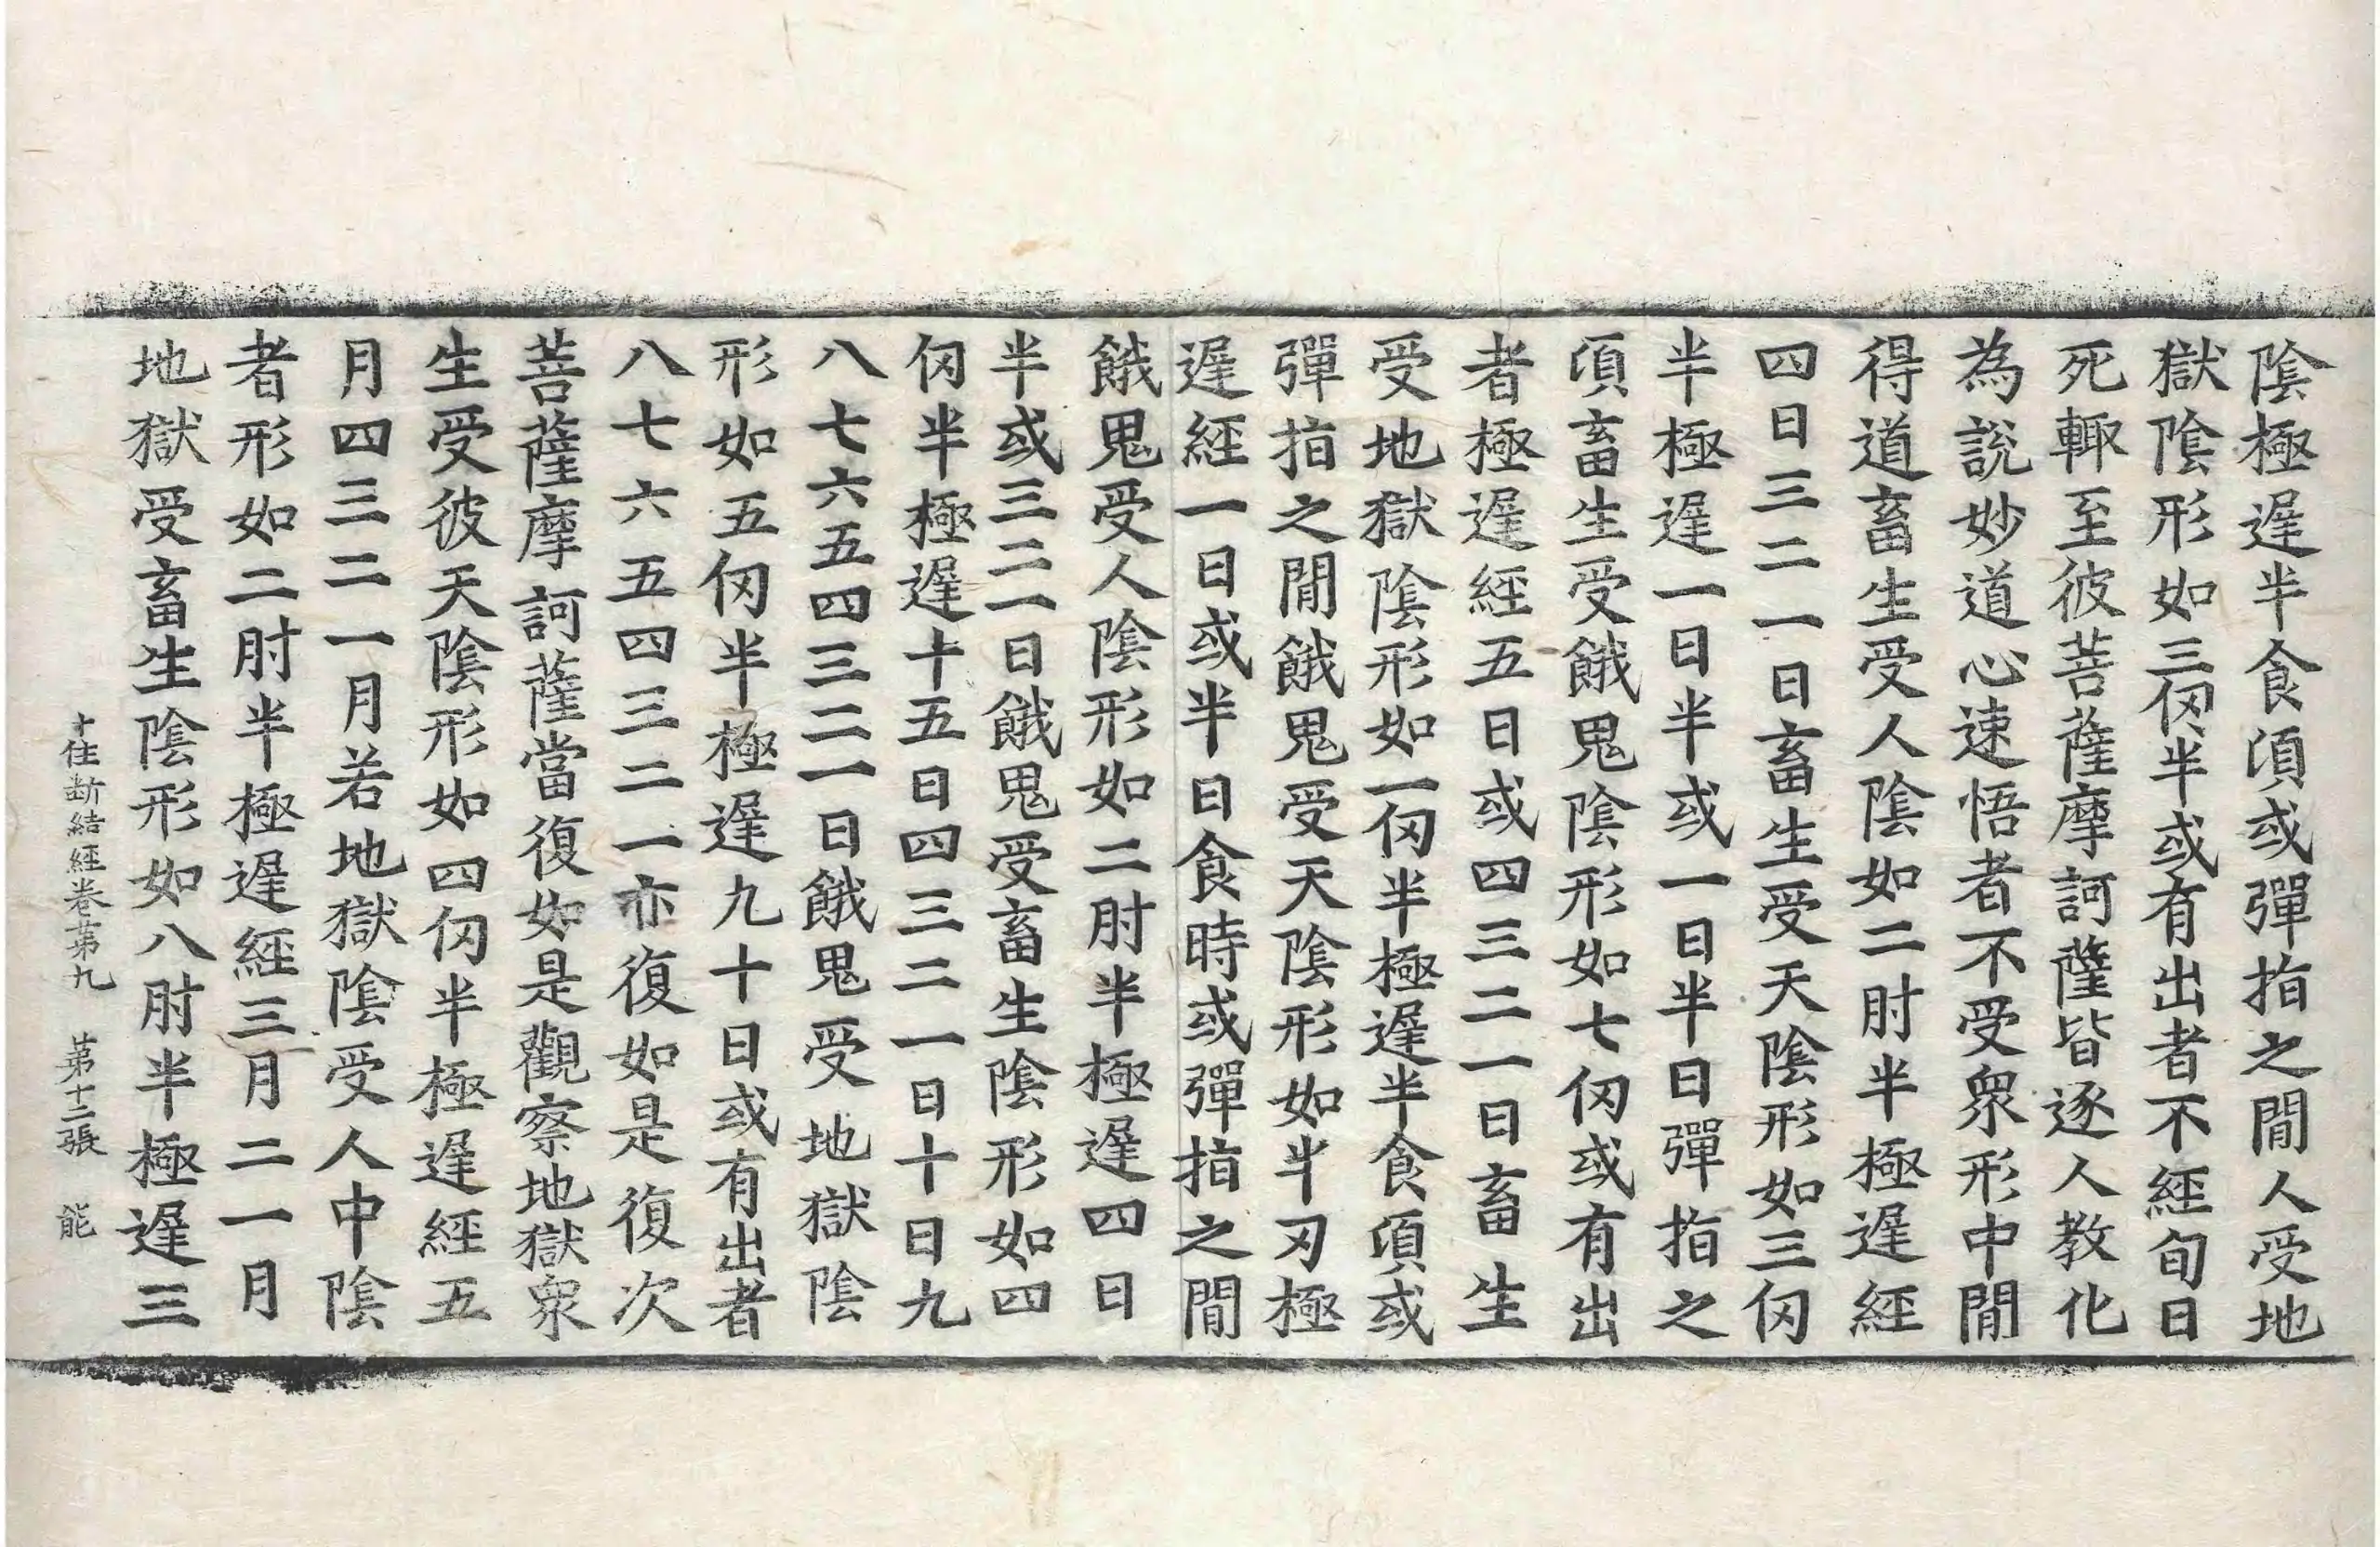 陰極遅半食湏或彈指之閒人受地
獄陰形如三仞半或有出者不經旬日
死輙至彼菩薩摩訶薩皆逐人教化
為說妙道心速悟者不受衆形中閒
得道畜生受人陰如二肘半極遅經
四日三二一日畜生受天陰形如三仞
半極遅一日半或一日半日彈指之
湏畜生受餓鬼陰形如七仞或有出
者極遅經五日或四三二一日畜生
受地獄陰形如一仞半極遅半食湏或
彈指之閒餓鬼受天陰形如半刃極
遅經一日或半日食時或彈指之閒
餓鬼受人陰形如二肘半極遅四日
半或三二一日餓鬼受畜生陰形如四
仞半極遅十五日四三二一日十日九
八七六五四三二一日餓鬼受地獄陰
形如五仞半極遅九十日或有出者
八七六五四三二一亦復如是復次
菩薩摩訶薩當復如是觀察地獄衆
生受彼天陰形如四仞半極遅經五
月四三二一月若地獄陰受人中陰
者形如二肘半極遅經三月二一月
地獄受畜生陰形如八肘半極遅三
十住断結經卷第九　第十二張　能